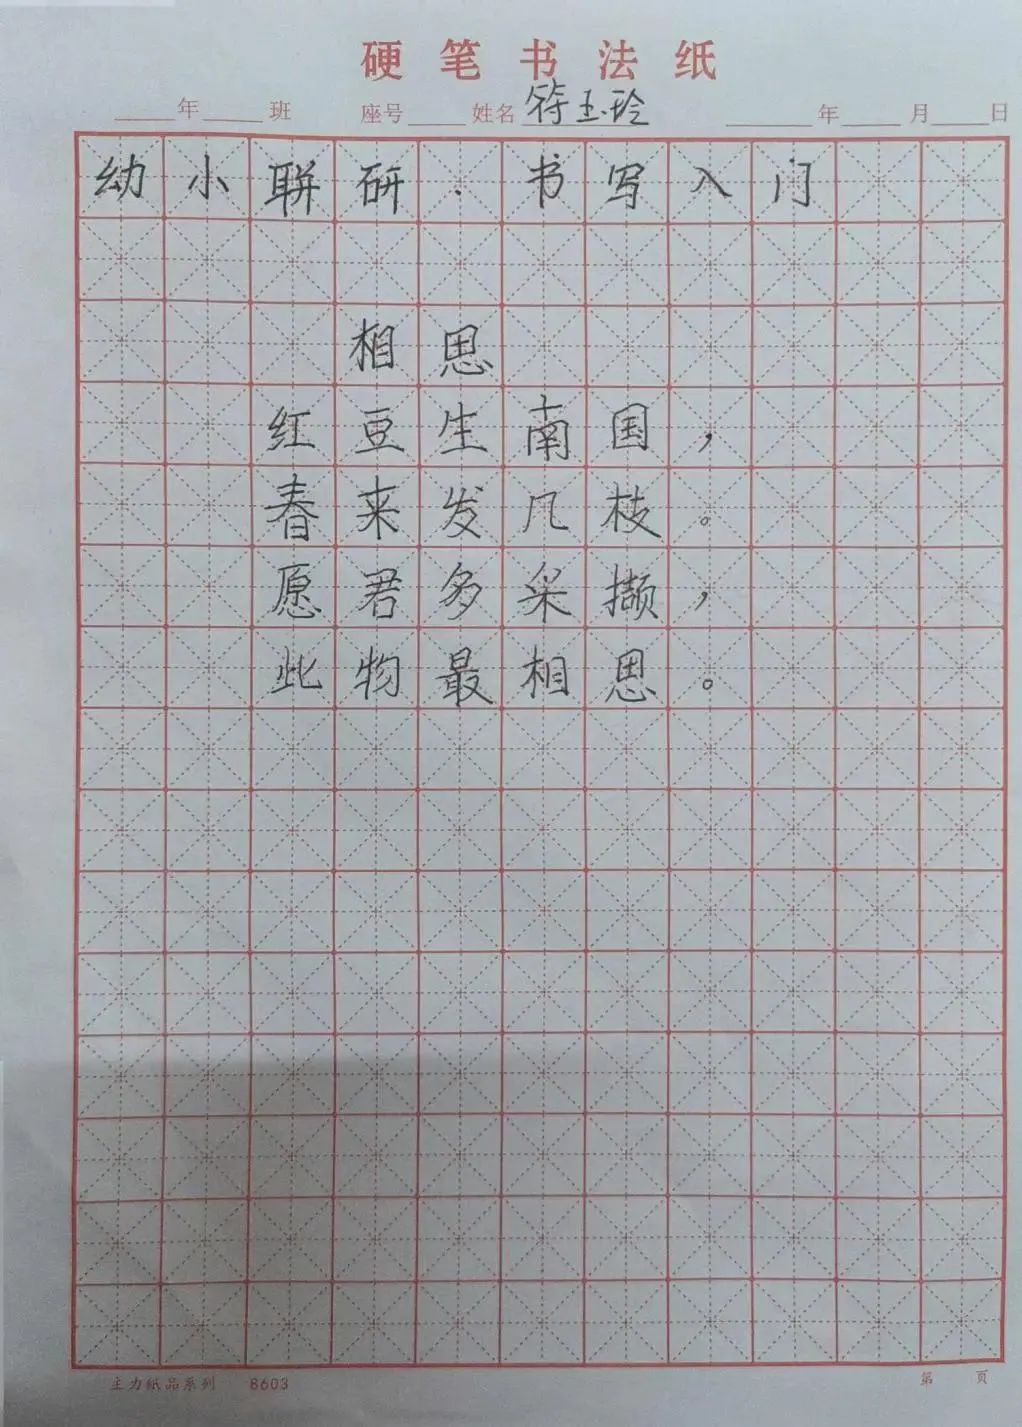 硬笔书法纸
年 班 座号 姓名 符玉玲 年 月 日
幼小联研·书写入门
相思
红豆生南国，
春来发几枝。
愿君多采撷，
此物最相思。
主力纸品系列 8603 第 页